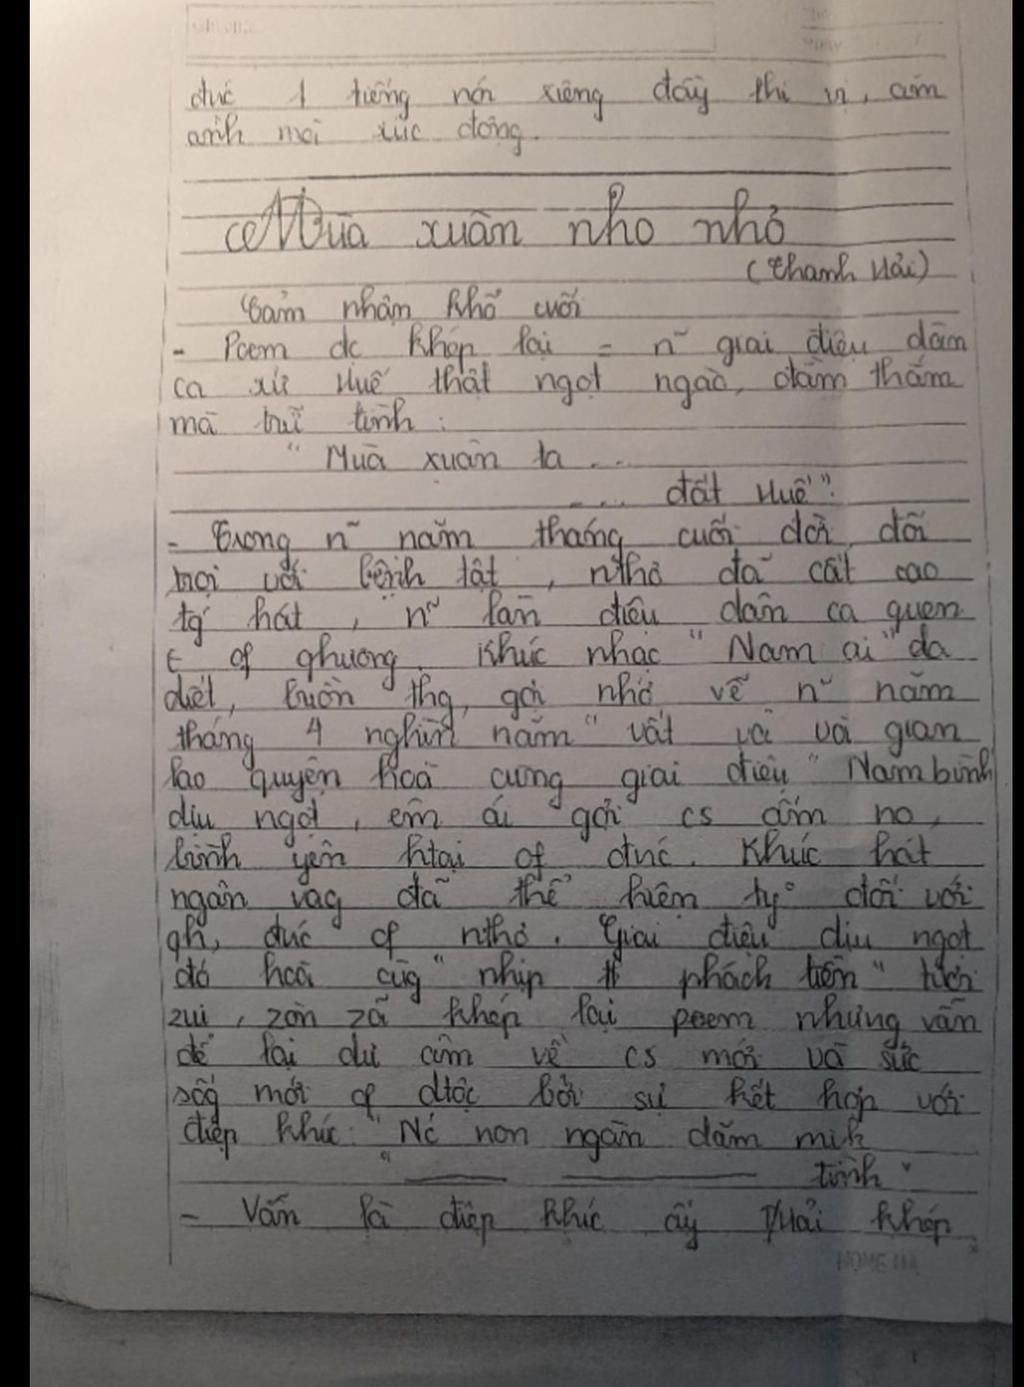 đưc 1 tiếng nói riêng đầy thi vị, cảm
anh mới xúc động.
Mùa xuân nho nhỏ
(Thanh Hải)
Cảm nhận khổ cuối
- Poem dc khép lại = n~ giai điệu dân
ca xứ Huế thật ngọt ngào, đằm thắm
mà trữ tình:
"Mùa xuân ta ...
... đất Huế".
- Trong n~ năm tháng cuối đời, đối
mọi với bệnh tật, nthơ đã cất cao
tg' hát, n~ làn điệu dân ca quen
t of qhương. Khúc nhạc "Nam ai" da
diết, buồn thg, gợi nhớ về n~ năm
tháng 4 nghìn năm "vất vả và gian
lao quyện hoà cùng giai điệu "Nam bình
dịu ngọt, êm ái gợi cs ấm no,
bình yên htại of đnc. Khúc hát
ngân vag đã thể hiện ty° đối với
qh, đnc of nthơ. Giai điệu dịu ngọt
đó hoà cùg "nhịp # phách tiền" tươi
zui, zòn zã khép lại poem nhưng vẫn
để lại dư âm về cs mới và sức
sốg mới of dtộc bởi sự kết hợp với
điệp khúc: "Nc non ngàn dặm mih
tình"
- Vẫn là điệp khúc ấy Thải khép